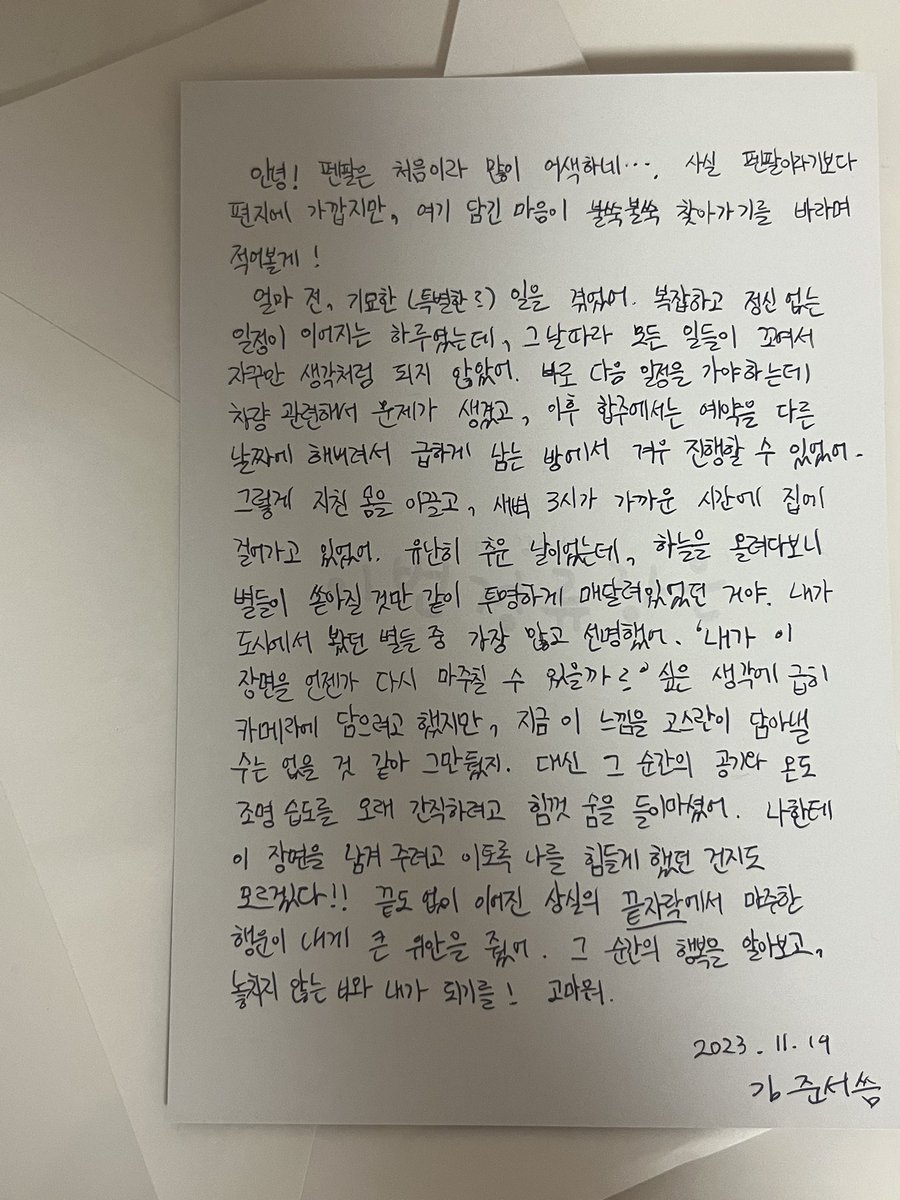 안녕! 펜팔은 처음이라 많이 어색하네···. 사실 펜팔이라기보다
편지에 가깝지만, 여기 담긴 마음이 불쑥불쑥 찾아가기를 바라며
적어볼게!
얼마 전, 기묘한 (특별한?) 일을 겪었어. 복잡하고 정신 없는
일정이 이어지는 하루였는데, 그날따라 모든 일들이 꼬여서
자꾸만 생각처럼 되지 않았어. 바로 다음 일정을 가야하는데
차량 관련해서 문제가 생겼고, 이후 합주에서는 예약을 다른
날짜에 해버려서 급하게 남는 방에서 겨우 진행할 수 있었어.
그렇게 지친 몸을 이끌고, 새벽 3시가 가까운 시간에 집에
걸어가고 있었어. 유난히 추운 날이었는데, 하늘을 올려다보니
별들이 쏟아질 것만 같이 투명하게 매달려있었던 거야. 내가
도시에서 봤던 별들 중 가장 많고 선명했어. '내가 이
장면을 언젠가 다시 마주칠 수 있을까?' 싶은 생각에 급히
카메라에 담으려고 했지만, 지금 이 느낌을 고스란이 담아낼
수는 없을 것 같아 그만뒀지. 대신 그 순간의 공기와 온도
조명 습도를 오래 간직하려고 힘껏 숨을 들이마셨어. 나한테
이 장면을 남겨 주려고 이토록 나를 힘들게 했던 건지도
모르겠다!! 끝도 없이 이어진 상실의 끝자락에서 마주한
행운이 내게 큰 위안을 줬어. 그 순간의 행복을 알아보고,
놓치지 않는 너와 내가 되기를! 고마워.
2023. 11. 19
김 준서 씀